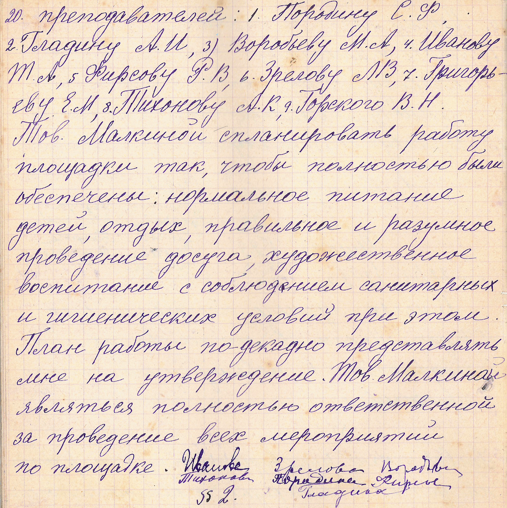 20. преподавателей: 1. Породину С. Ф,
2 Гладину А. И, 3) Воробьеву М. А, 4. Иванову
Т А, 5 Фирсову Р. В, 6. Зрелову Л В, 7. Григорь-
еву Е. М, 8. Тихонову А. К, 9. Горского В. Н.
Тов. Малкиной спланировать работу
площадки так, чтобы полностью были
обеспечены: нормальное питание
детей, отдых, правильное и разумное
проведение досуга, художественное
воспитание с соблюдением санитарных
и гигиенических условий при этом.
План работы по-декадно представлять
мне на утверждение. Тов Малкиной
являться полностью ответственной
за проведение всех мероприятий
по площадке. Иванова Зрелова Воробьев
Тихонова Породина Фирсо
2. Гладина